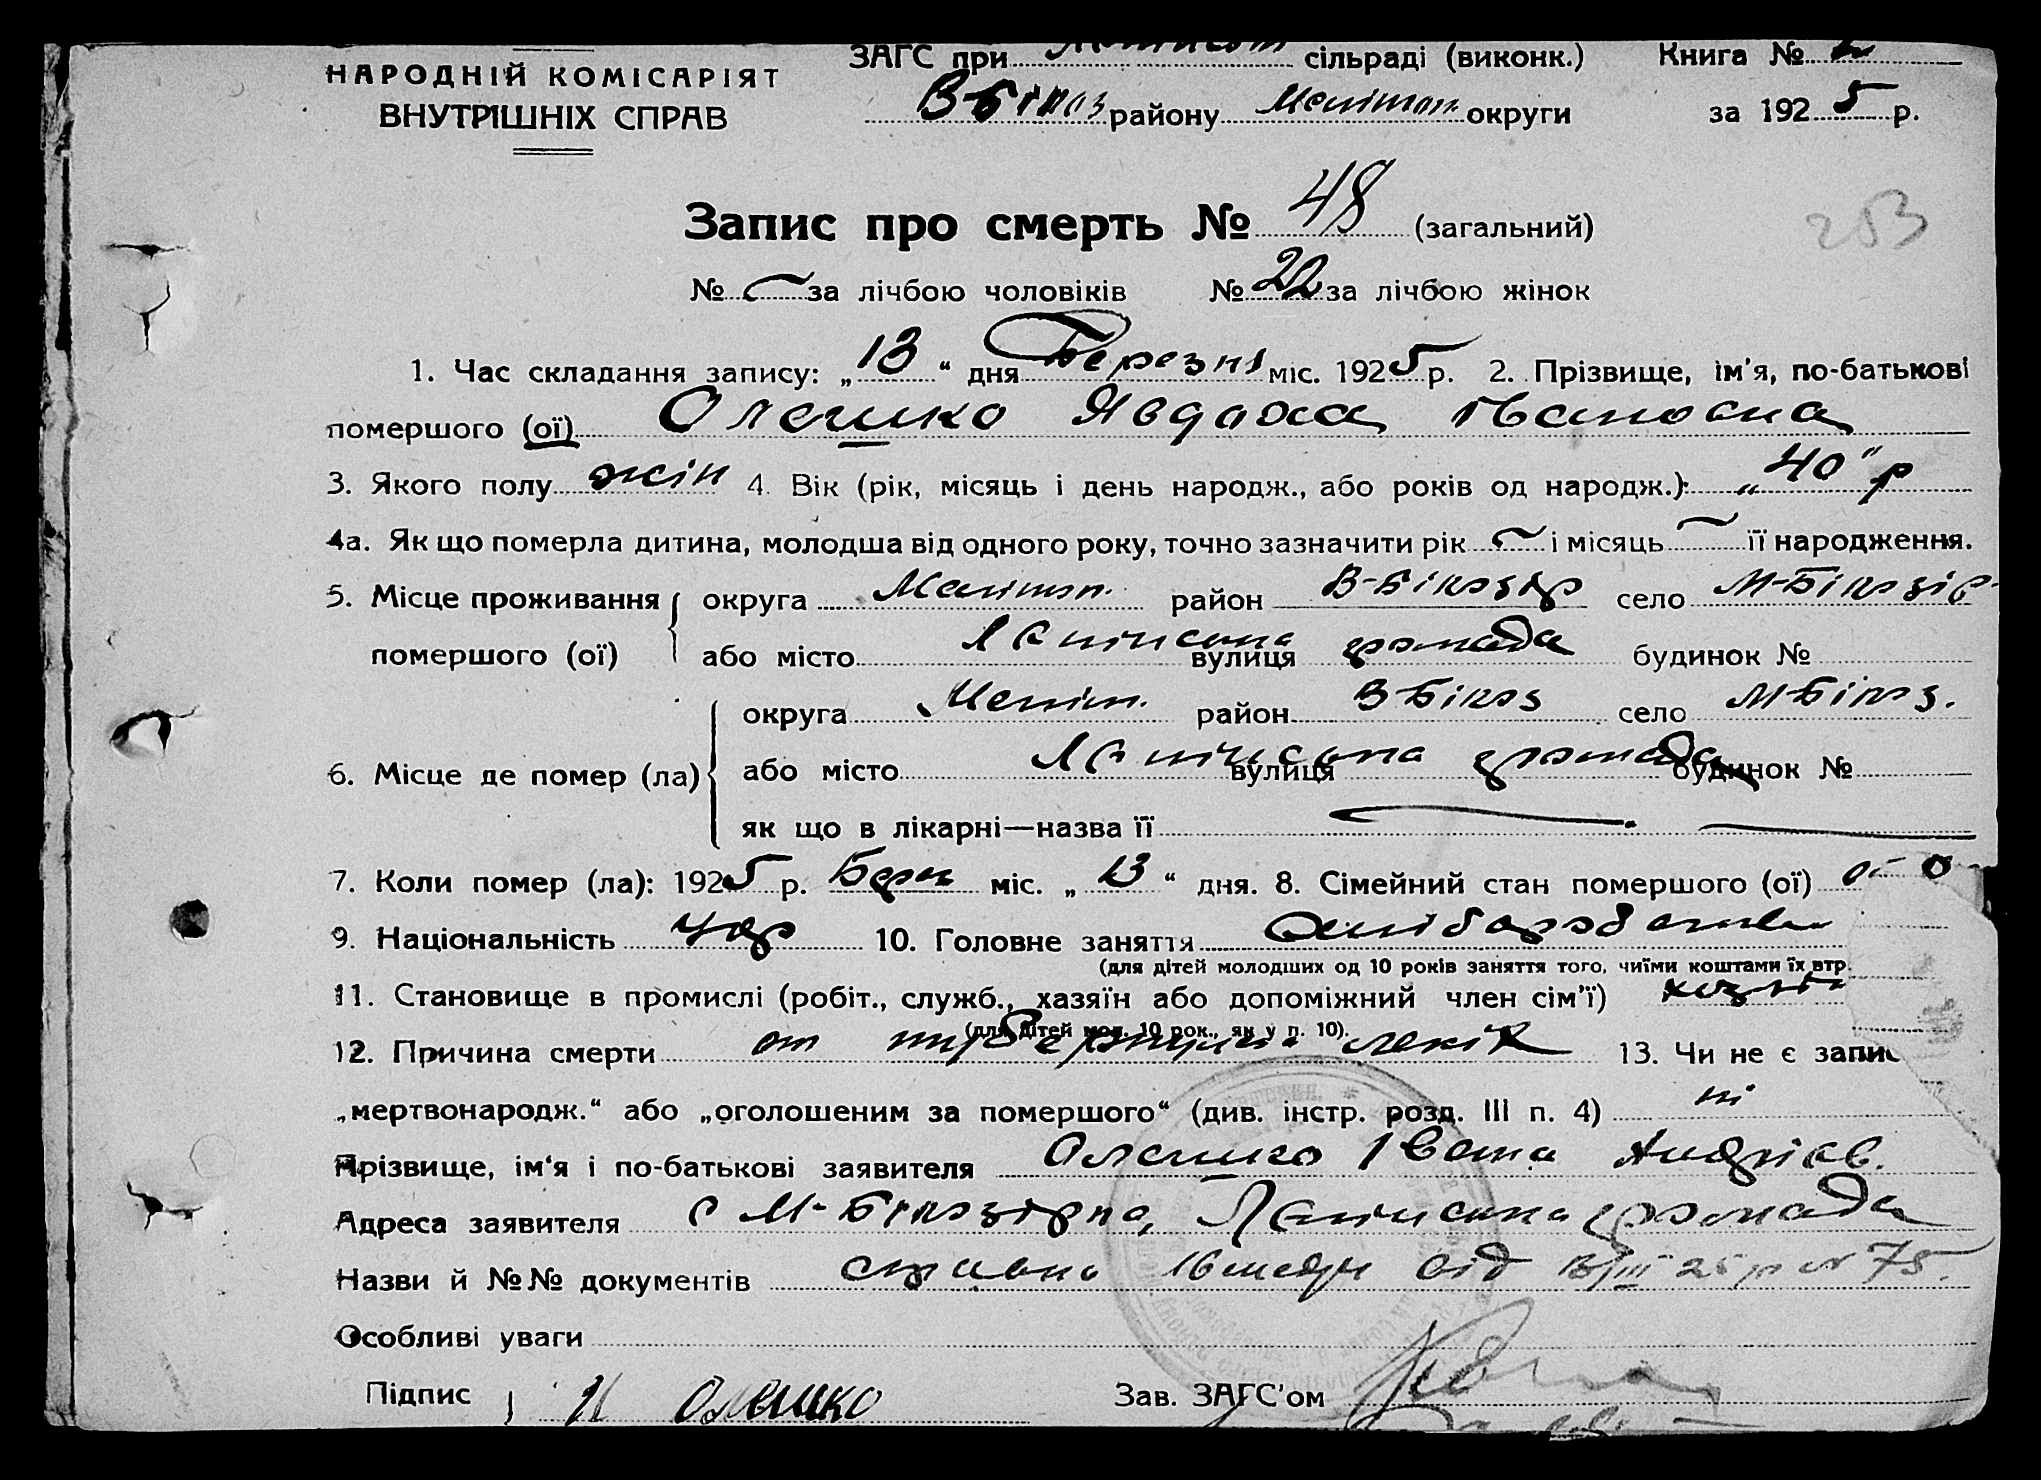 ЗАГС при сільраді (виконк.) Книга №
НАРОДНІЙ КОМІСАРІЯТ
ВНУТРІШНІХ СПРАВ
В-Білоз району Мелітоп. округи за 1925 р.
Запис про смерть № 48 (загальний)
253
№ — за лічбою чоловіків № 22 за лічбою жінок
1. Час складання запису: „13“ дня Березня міс. 1925 р. 2. Прізвище, ім'я, по-батькові
помершого (ої) Олешко Явдоха Івановна
3. Якого полу жін 4. Вік (рік, місяць і день народж., або років од народж.): „40" р
4а. Як що померла дитина, молодша від одного року, точно зазначити рік — і місяць — її народження.
5. Місце проживання округа Мелітоп. район В-Білозір село М-Білозір-
помершого (ої) або місто вулиця громада будинок №
округа Меліт. район В-Білоз село М-Білоз.
6. Місце де помер (ла) або місто вулиця громада будинок №
як що в лікарні—назва її
7. Коли помер (ла): 1925 р. Берез міс. „13“ дня. 8. Сімейний стан помершого (ої)
9. Національність Укр 10. Головне заняття
(для дітей молодших од 10 років заняття того, чиїми коштами їх втр.
11. Становище в промислі (робіт., служб., хазяїн або допоміжний член сім'ї)
(для дітей мол. 10 рок., як у п. 10).
12. Причина смерти от туберкульоза легкіх 13. Чи не є запис
„мертвонародж.“ або „оголошеним за помершого“ (див. інстр. розд. III п. 4) ні
Прізвище, ім'я і по-батькові заявителя Олешко Івана Андрієв.
Адреса заявителя с М-Білозірка, громада
Назви й №№ документів від 13/III 25 р № 75.
Особливі уваги
Підпис И Олешко Зав. ЗАГС'ом